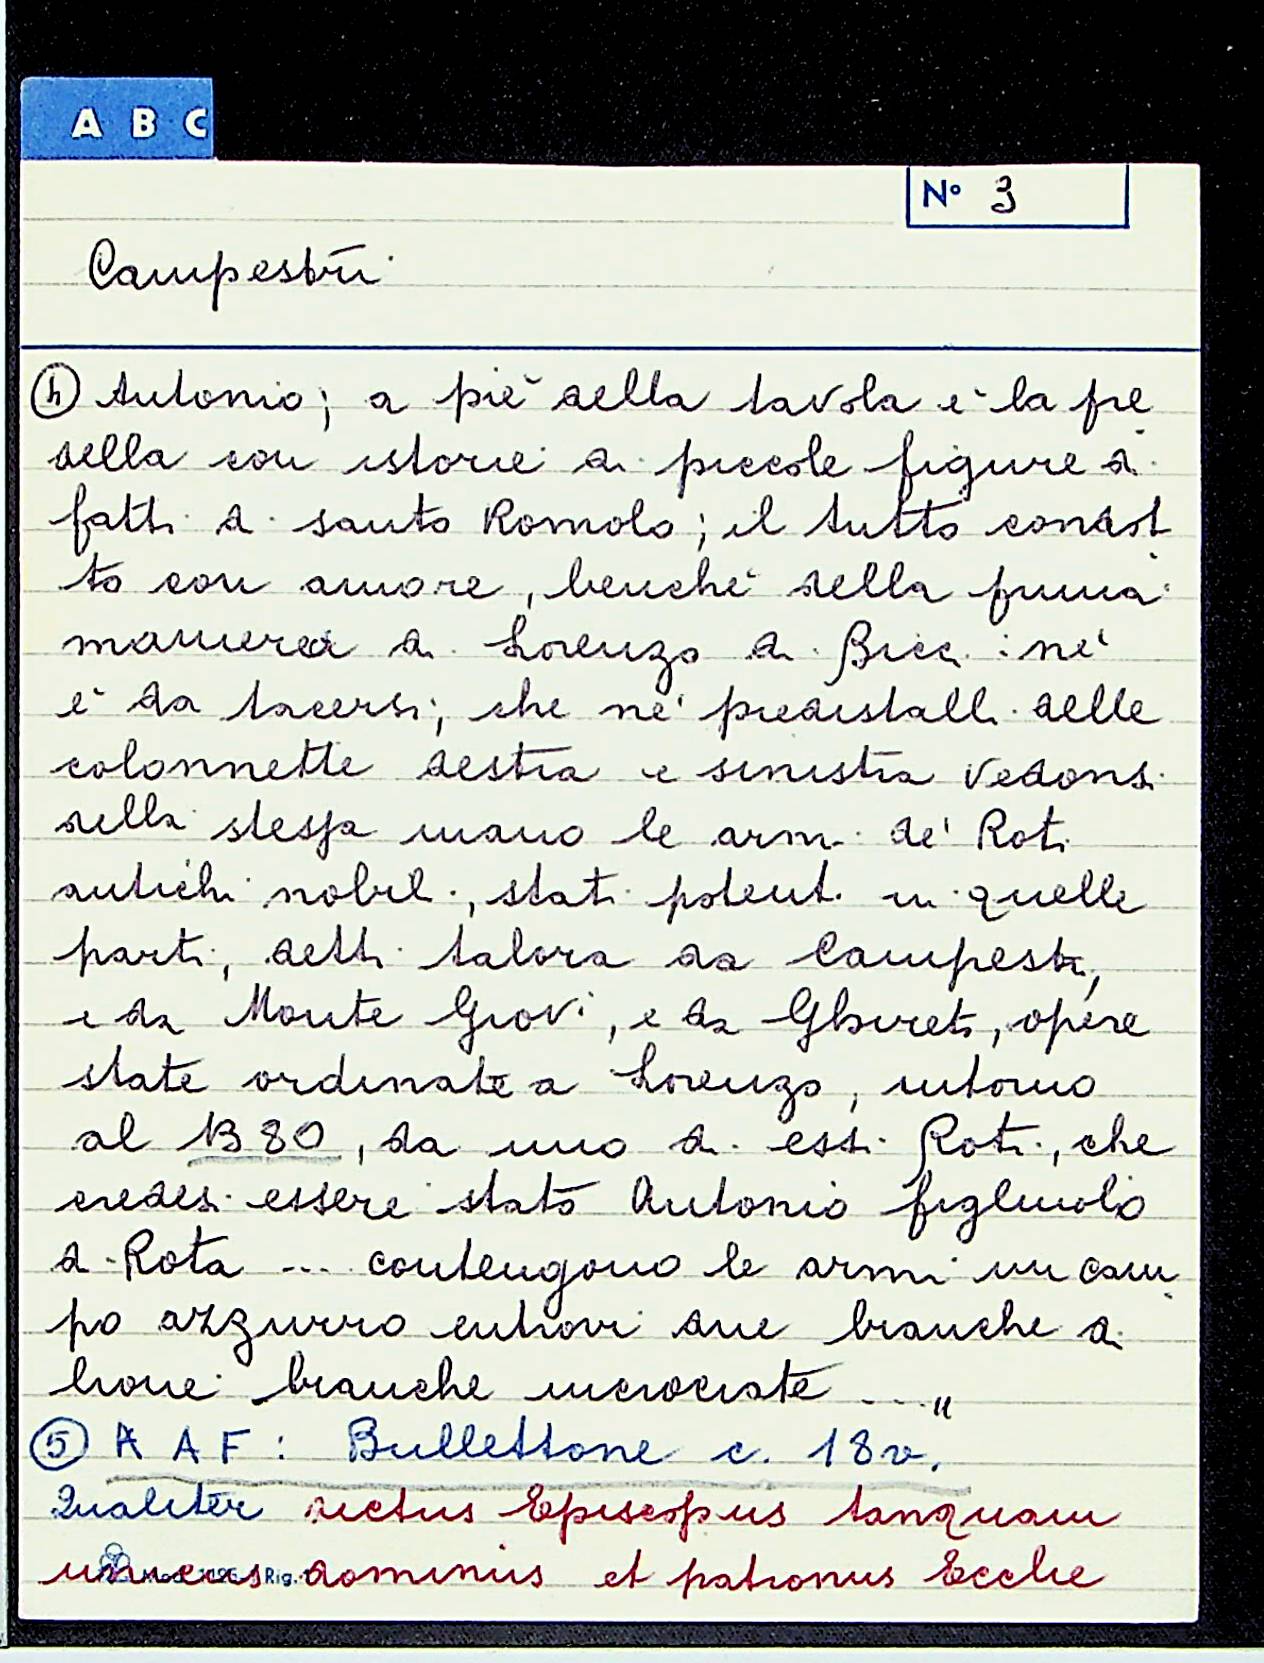 A B C
N° 3
Campestri
④ Antonio; a piè della tavola è la pre
della con istorie di piccole figure di
fatti di santo Romolo; il tutto condot
to con amore, benché della prima
maniera di Lorenzo di Bicci: né
è da tacersi, che ne' piedistalli delle
colonnette destra e sinistra vedonsi
della stessa mano le armi de' Roti
antichi nobili, stati potenti in quelle
parti, detti talora da Campestri,
e da Monte Giovi, e da Ghireti, opere
state ordinate a Lorenzo, intorno
al 1380, da uno di essi Roti, che
credesi essere stato Antonio figliuolo
di Rota ... contengono le armi un cam
po azzurro entrovi due branche di
lione branche incrociate ...."
⑤ A A F: Bullettone c. 18v.
Qualiter dictus Episcopus tanquam
unicus dominus et patronus Ecclie